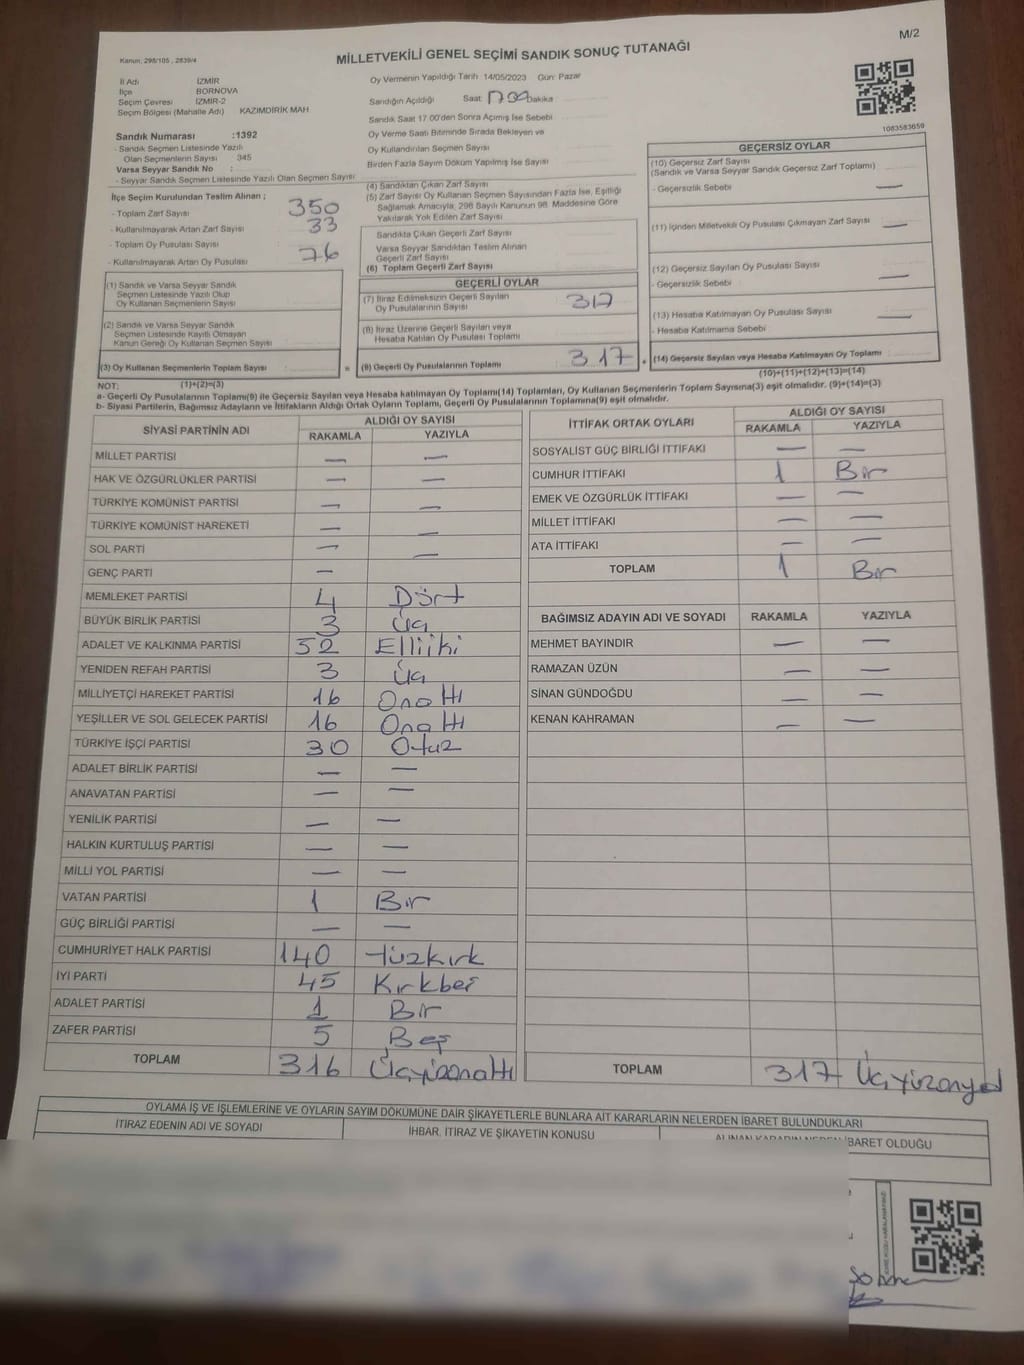 M/2
Kanun, 298/105 , 2839/4
MİLLETVEKİLİ GENEL SEÇİMİ SANDIK SONUÇ TUTANAĞI
İl Adı İZMİR
İlçe BORNOVA
Seçim Çevresi İZMİR-2
Seçim Bölgesi (Mahalle Adı) KAZIMDİRİK MAH
Sandık Numarası :1392
- Sandık Seçmen Listesinde Yazılı
Olan Seçmenlerin Sayısı 345
Varsa Seyyar Sandık No :
- Seyyar Sandık Seçmen Listesinde Yazılı Olan Seçmen Sayısı
İlçe Seçim Kurulundan Teslim Alınan ;
- Toplam Zarf Sayısı 350
- Kullanılmayarak Artan Zarf Sayısı 33
- Toplam Oy Pusulası Sayısı
- Kullanılmayarak Artan Oy Pusulası 76
(1) Sandık ve Varsa Seyyar Sandık
Seçmen Listesinde Yazılı Olup
Oy Kullanan Seçmenlerin Sayısı
(2) Sandık ve Varsa Seyyar Sandık
Seçmen Listesinde Kayıtlı Olmayan
Kanun Gereği Oy Kullanan Seçmen Sayısı
(3) Oy Kullanan Seçmenlerin Toplam Sayısı =
Oy Vermenin Yapıldığı Tarih 14/05/2023 Gün: Pazar
Sandığın Açıldığı Saat Dakika
Sandık Saat 17.00'den Sonra Açılmış İse Sebebi
Oy Verme Saati Bitiminde Sırada Bekleyen ve
Oy Kullandırılan Seçmen Sayısı
Birden Fazla Sayım Döküm Yapılmış İse Sayısı
(4) Sandıktan Çıkan Zarf Sayısı
(5) Zarf Sayısı Oy Kullanan Seçmen Sayısından Fazla İse, Eşitliği
Sağlamak Amacıyla, 298 Sayılı Kanunun 98. Maddesine Göre
Yakılarak Yok Edilen Zarf Sayısı
Sandıkta Çıkan Geçerli Zarf Sayısı
Varsa Seyyar Sandıktan Teslim Alınan
Geçerli Zarf Sayısı
(6) Toplam Geçerli Zarf Sayısı
GEÇERLİ OYLAR
(7) İtiraz Edilmeksizin Geçerli Sayılan
Oy Pusulalarının Sayısı 317
(8) İtiraz Üzerine Geçerli Sayılan veya
Hesaba Katılan Oy Pusulası Toplamı
(9) Geçerli Oy Pusulalarının Toplamı 317 +
1083583659
GEÇERSİZ OYLAR
(10) Geçersiz Zarf Sayısı
(Sandık ve Varsa Seyyar Sandık Geçersiz Zarf Toplamı)
- Geçersizlik Sebebi —
(11) İçinden Milletvekili Oy Pusulası Çıkmayan Zarf Sayısı —
(12) Geçersiz Sayılan Oy Pusulası Sayısı
- Geçersizlik Sebebi —
(13) Hesaba Katılmayan Oy Pusulası Sayısı —
- Hesaba Katılmama Sebebi
(14) Geçersiz Sayılan veya Hesaba Katılmayan Oy Toplamı
(10)+(11)+(12)+(13)=(14)
NOT: (1)+(2)=(3)
a- Geçerli Oy Pusulalarının Toplamı(9) ile Geçersiz Sayılan veya Hesaba katılmayan Oy Toplamı(14) Toplamları, Oy Kullanan Seçmenlerin Toplam Sayısına(3) eşit olmalıdır. (9)+(14)=(3)
b- Siyasi Partilerin, Bağımsız Adayların ve İttifakların Aldığı Ortak Oyların Toplamı, Geçerli Oy Pusulalarının Toplamına(9) eşit olmalıdır.
SİYASİ PARTİNİN ADI ALDIĞI OY SAYISI
RAKAMLA YAZIYLA
MİLLET PARTİSİ — —
HAK VE ÖZGÜRLÜKLER PARTİSİ — —
TÜRKİYE KOMÜNİST PARTİSİ — —
TÜRKİYE KOMÜNİST HAREKETİ — —
SOL PARTİ — —
GENÇ PARTİ —
MEMLEKET PARTİSİ 4 Dört
BÜYÜK BİRLİK PARTİSİ 3 Üç
ADALET VE KALKINMA PARTİSİ 52 Elliiki
YENİDEN REFAH PARTİSİ 3 Üç
MİLLİYETÇİ HAREKET PARTİSİ 16 Onaltı
YEŞİLLER VE SOL GELECEK PARTİSİ 16 Onaltı
TÜRKİYE İŞÇİ PARTİSİ 30 Otuz
ADALET BİRLİK PARTİSİ — —
ANAVATAN PARTİSİ — —
YENİLİK PARTİSİ — —
HALKIN KURTULUŞ PARTİSİ — —
MİLLİ YOL PARTİSİ — —
VATAN PARTİSİ 1 Bir
GÜÇ BİRLİĞİ PARTİSİ — —
CUMHURİYET HALK PARTİSİ 140 Yüzkırk
İYİ PARTİ 45 Kırkbeş
ADALET PARTİSİ 1 Bir
ZAFER PARTİSİ 5 Beş
TOPLAM 316 Üçyüzonaltı
İTTİFAK ORTAK OYLARI ALDIĞI OY SAYISI
RAKAMLA YAZIYLA
SOSYALİST GÜÇ BİRLİĞİ İTTİFAKI — —
CUMHUR İTTİFAKI 1 Bir
EMEK VE ÖZGÜRLÜK İTTİFAKI — —
MİLLET İTTİFAKI — —
ATA İTTİFAKI — —
TOPLAM 1 Bir
BAĞIMSIZ ADAYIN ADI VE SOYADI RAKAMLA YAZIYLA
MEHMET BAYINDIR — —
RAMAZAN ÜZÜN — —
SİNAN GÜNDOĞDU — —
KENAN KAHRAMAN — —
TOPLAM 317 Üçyüzonyedi
OYLAMA İŞ VE İŞLEMLERİNE VE OYLARIN SAYIM DÖKÜMÜNE DAİR ŞİKAYETLERLE BUNLARA AİT KARARLARIN NELERDEN İBARET BULUNDUKLARI
İTİRAZ EDENİN ADI VE SOYADI İHBAR, İTİRAZ VE ŞİKAYETİN KONUSU ALINAN KARARIN NEDEN İBARET OLDUĞU